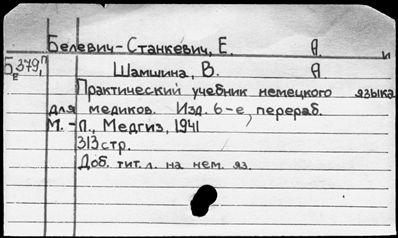 Белевич-Станкевич, Е. А. и
Б 379,п Шамшина, В. А.
Е
Практический учебник немецкого языка
для медиков. Изд. 6-е, перераб.
М.-Л., Медгиз, 1941
313 стр.
Доб. тит. л. на нем. яз.